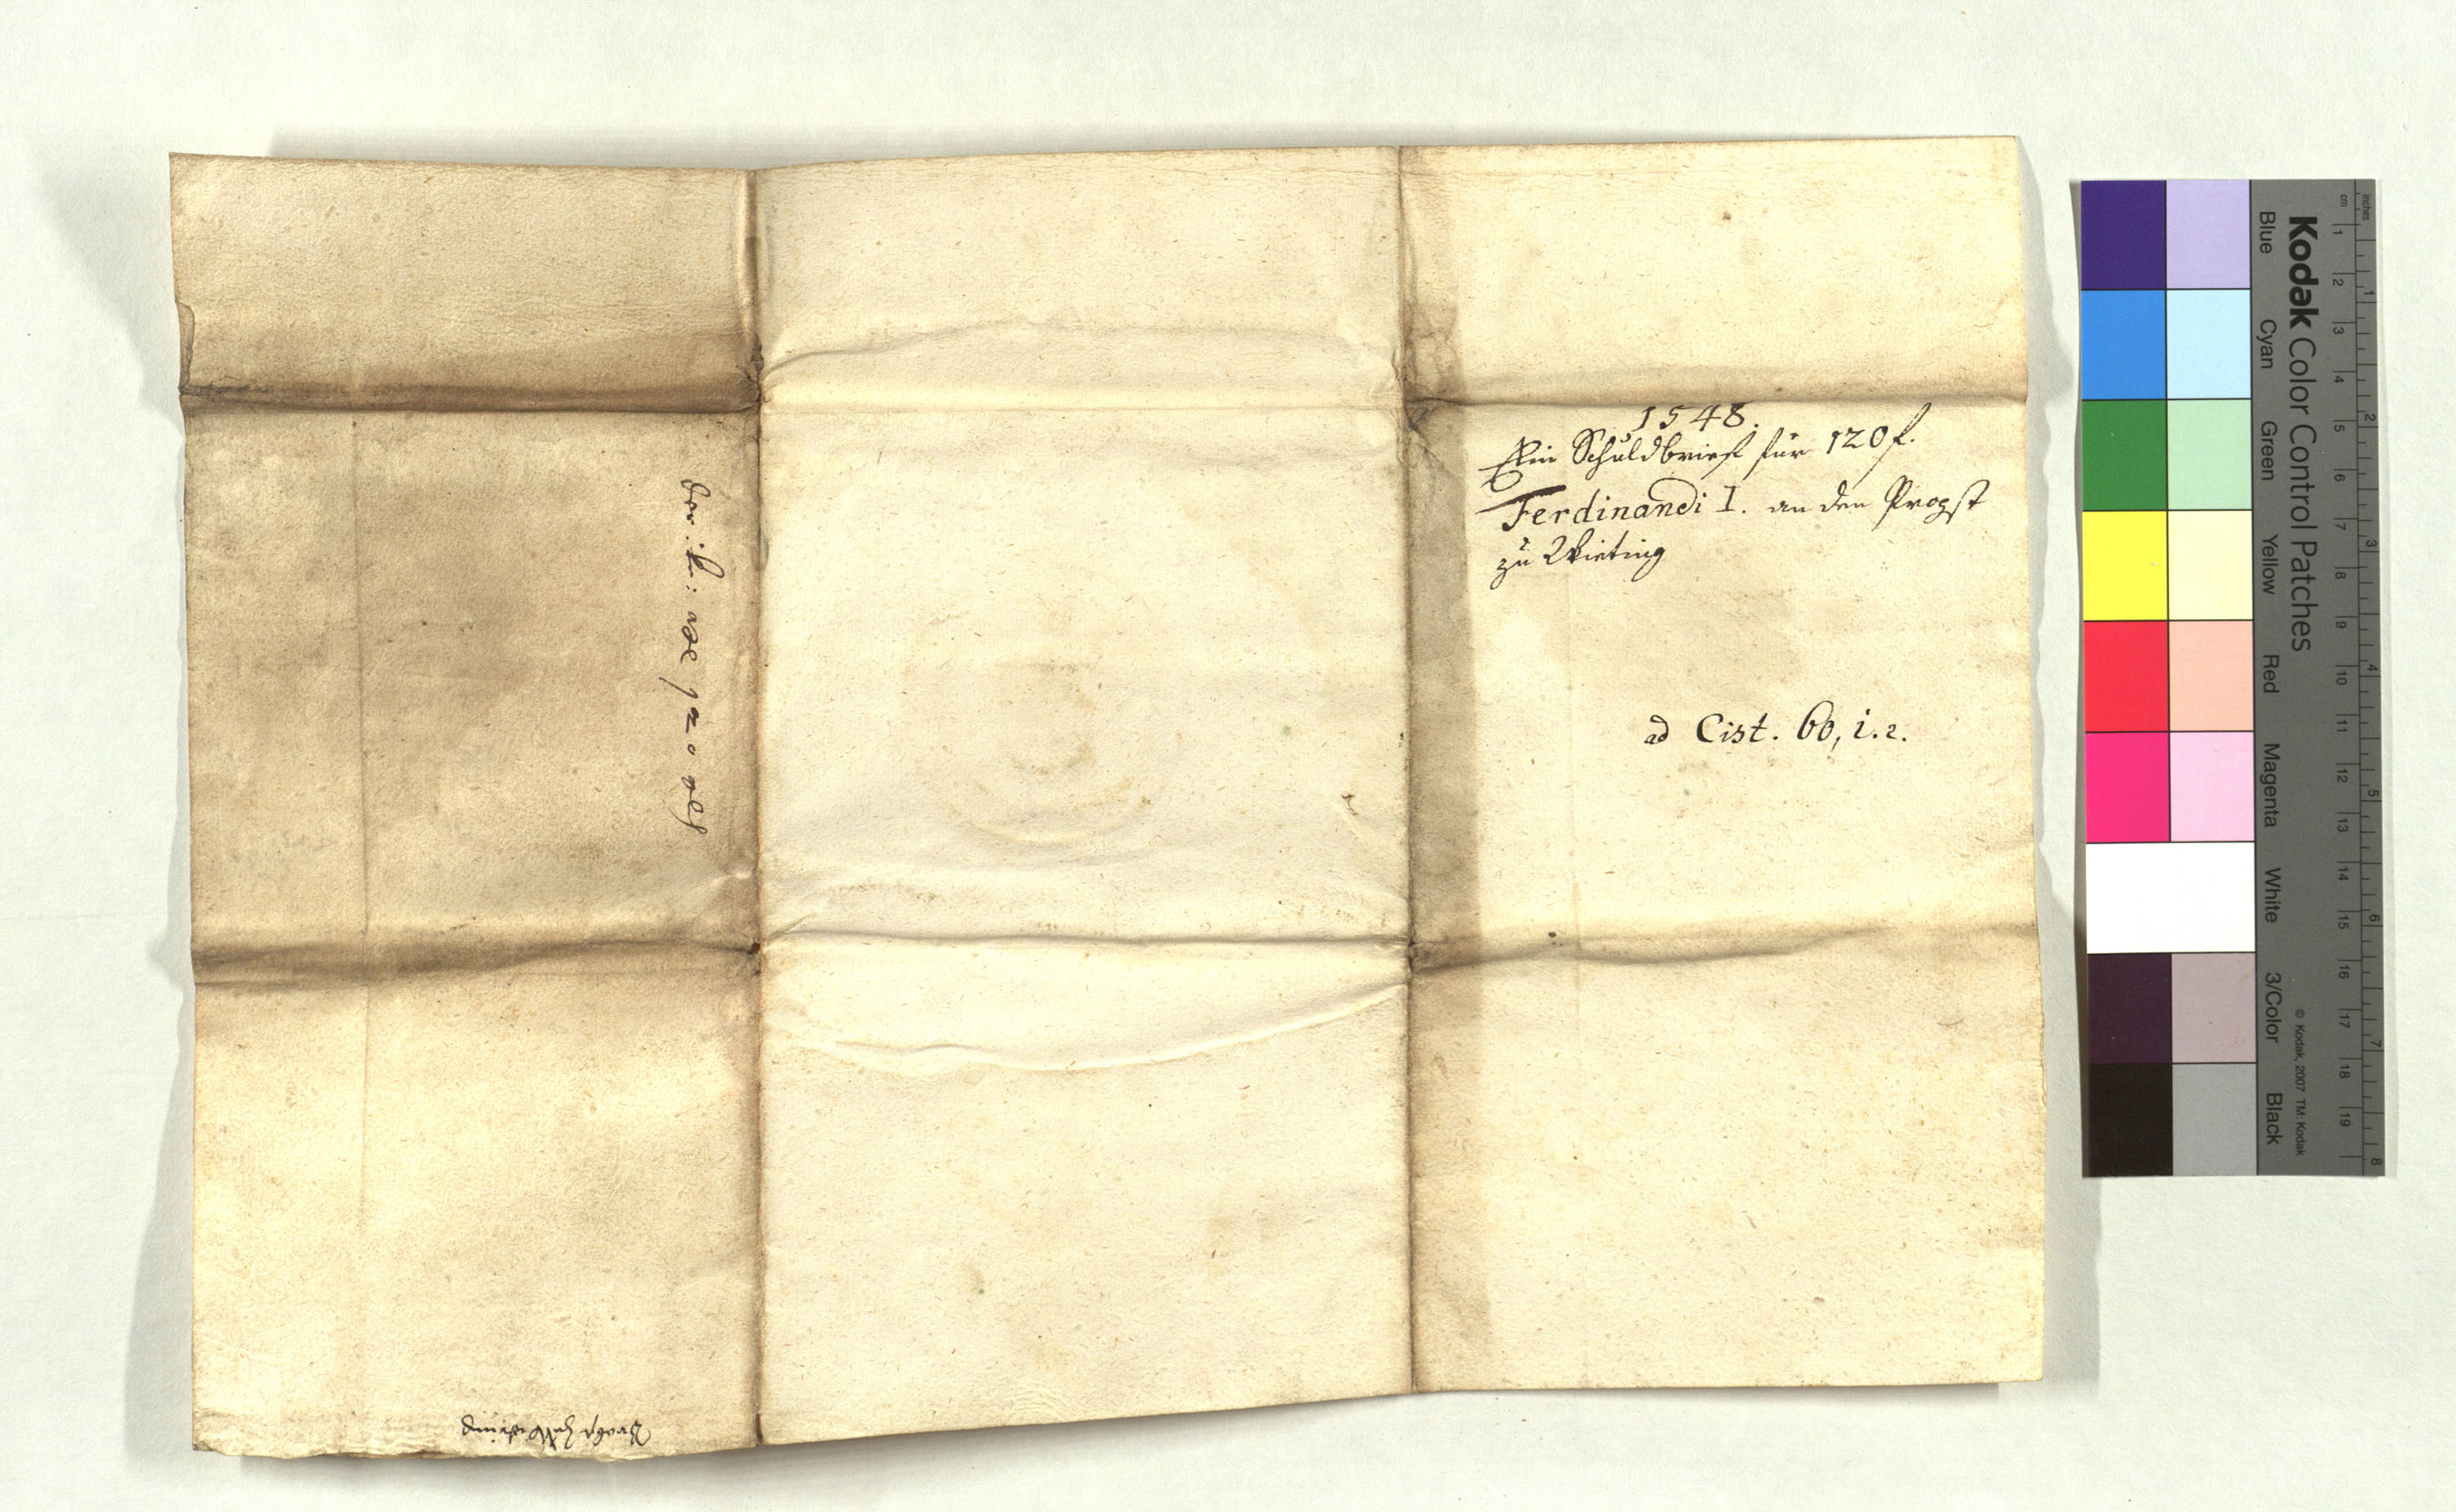 1548.
Ein Schuldbrief für 120 f.
Ferdinandi I. an den Propst
zu Wieting
ad Cist. 60, i. 2.
120
Brobst zu Wieting
Kodak Color Control Patches
Blue Cyan Green Yellow Red Magenta White 3/Color Black
© Kodak, 2007 TM: Kodak
inches 1 2 3 4 5 6 7 8
cm 1 2 3 4 5 6 7 8 9 10 11 12 13 14 15 16 17 18 19